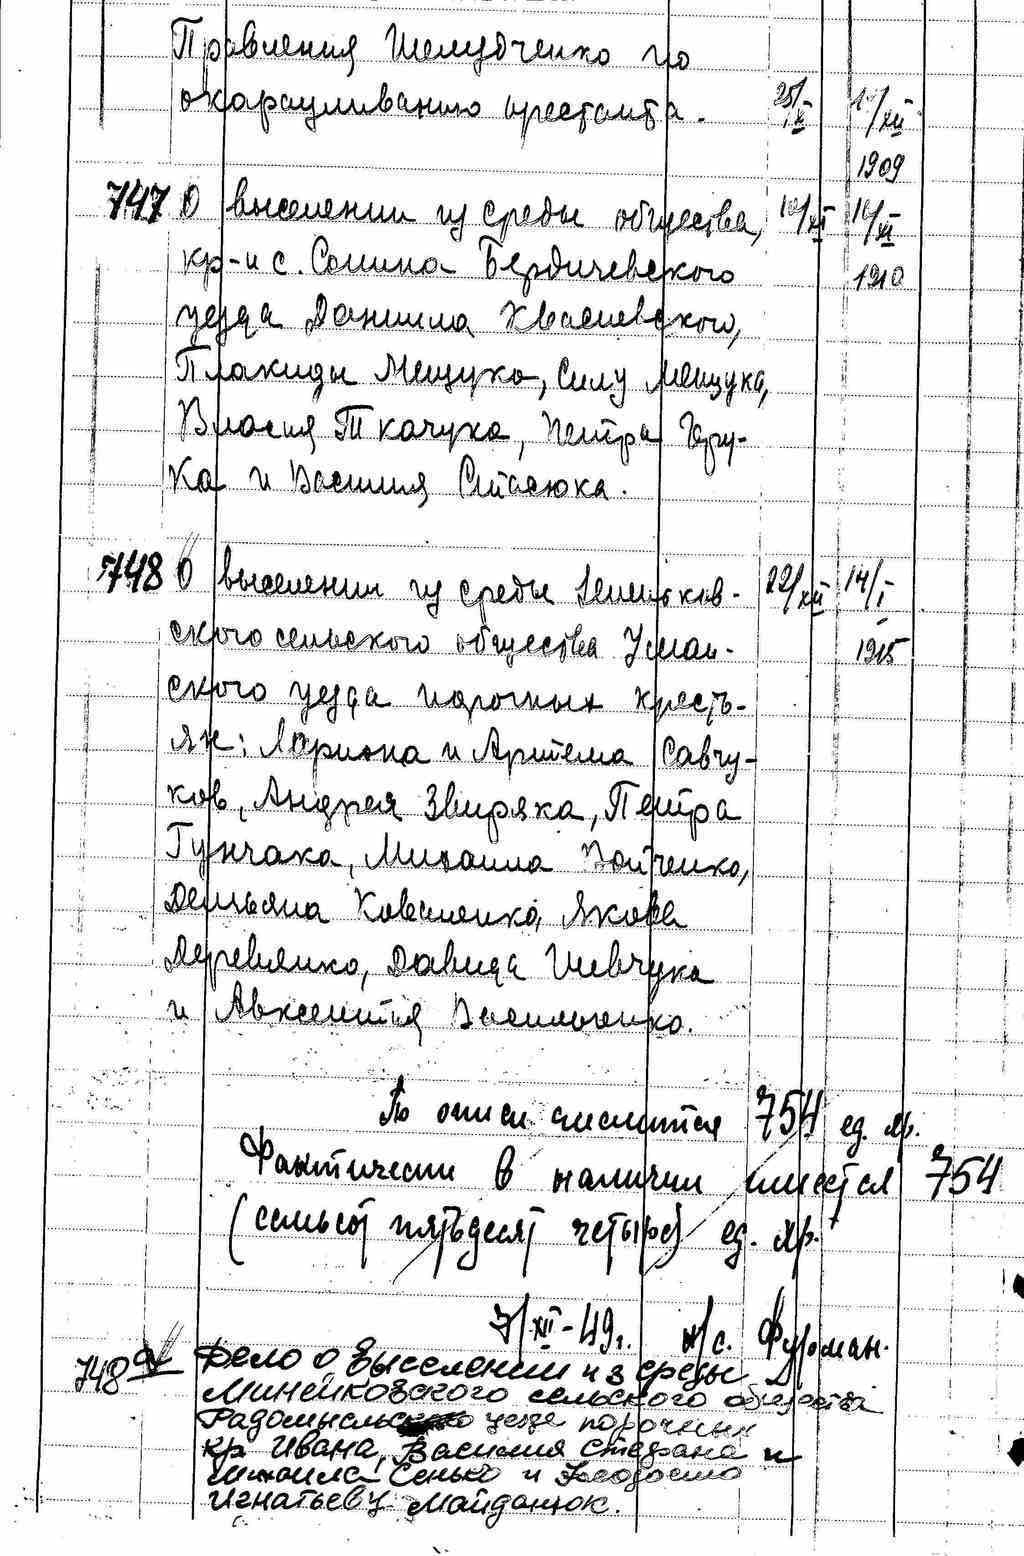 Правления Шелудченко по
окарауливанию арестанта. 25/IX 1/XII
1909
747 О выселении из среды общества, 10/XI 16/XI
кр-н с. Сошна Бердичевского 1910
уезда Даниила Квасневского,
Плакиды Мещука, Силу Мещука,
Власия Ткачука, Петра
ка и Василия Стасюка.
748 О выселении из среды 22/XII 14/I
ского сельского общества Уман- 1915
ского уезда порочных кресть-
ян: Лариона и Артема Савчу-
ков, Андрея Звиряка, Петра
Гунчака, Михаила Войченко,
Демьяна Коваленко, Якова
Деревянко, Давида Шевчука
и Авксентия Васильченко.
По описи числится 754 ед. хр.
Фактически в наличии имеется 754
(семьсот пятьдесят четыре) ед. хр.
7/XII-49г. н/с. Фурман.
748а Дело о выселении из среды
Минейковского сельского общества
Радомысльского уезда порочных
кр Ивана, Василия Стефана и
Михаила Сенько и Феодосию
Игнатьеву Майданюк.